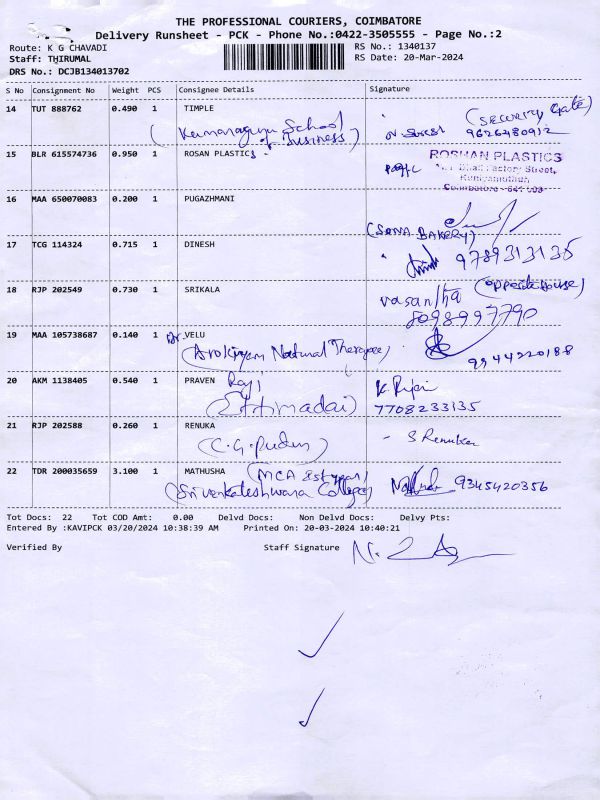 THE PROFESSIONAL COURIERS, COIMBATORE
Delivery Runsheet - PCK - Phone No.:0422-3505555 - Page No.:2
Route: K G CHAVADI RS No.: 1340137
Staff: THIRUMAL RS Date: 20-Mar-2024
DRS No.: DCJB134013702
S No Consignment No Weight PCS Consignee Details Signature
14 TUT 888762 0.490 1 TIMPLE (Security Gate)
(Kumaraguru School 9626480912
of Business)
15 BLR 615574736 0.950 1 ROSAN PLASTICS ROSHAN PLASTICS
Factory Street,
Coimbatore
16 MAA 650070083 0.200 1 PUGAZHMANI
(SONA BAKERY)
17 TCG 114324 0.715 1 DINESH 9789313135
18 RJP 202549 0.730 1 SRIKALA vasantha (opposite house)
8098997790
19 MAA 105738687 0.140 1 Dr. VELU
(Arokiyam Natural Therapee) 9944220188
20 AKM 1138405 0.540 1 PRAVEN Raji K.
(Ettimadai) 7708233135
21 RJP 202588 0.260 1 RENUKA - S Renuka
(C.G. Pudur)
22 TDR 200035659 3.100 1 MATHUSHA (MCA 1st year)
(Sri venkateshwara College) 9345420356
Tot Docs: 22 Tot COD Amt: 0.00 Delvd Docs: Non Delvd Docs: Delvy Pts:
Entered By :KAVIPCK 03/20/2024 10:38:39 AM Printed On: 20-03-2024 10:40:21
Verified By Staff Signature